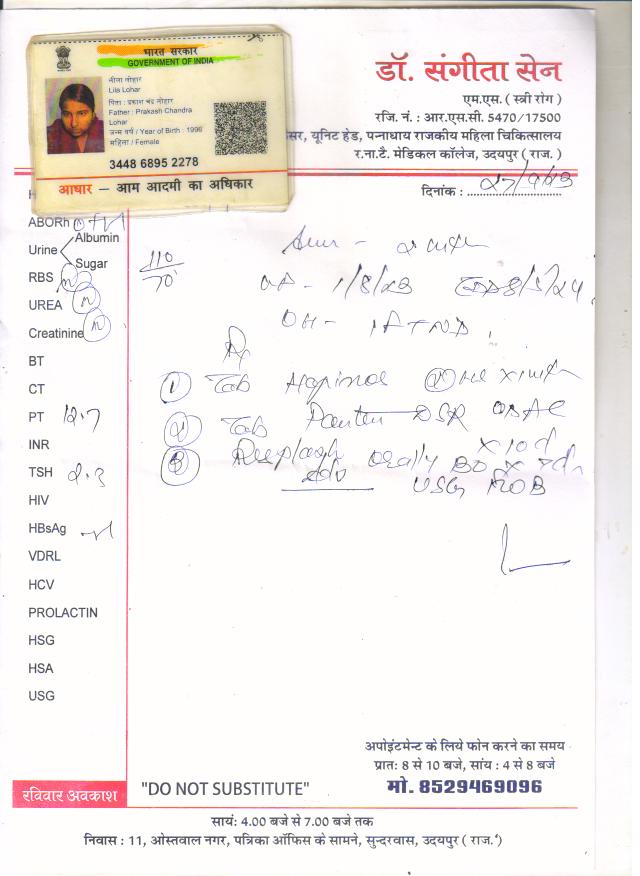 भारत सरकार
GOVERNMENT OF INDIA
लीला लोहार
Lila Lohar
पिता : प्रकाश चंद्र लोहार
Father : Prakash Chandra
Lohar
जन्म वर्ष / Year of Birth : 1996
महिला / Female
3448 6895 2278
आधार — आम आदमी का अधिकार
डॉ. संगीता सेन
एम.एस. ( स्त्री रोग )
रजि. नं. : आर.एस.सी. 5470/17500
सर, यूनिट हेड, पन्नाधाय राजकीय महिला चिकित्सालय
र.ना.टै. मेडिकल कॉलेज, उदयपुर ( राज. )
दिनांक :
ABORh
Urine Albumin
Sugar
RBS
UREA
Creatinine
BT
CT
PT 12.7
INR
TSH 2.3
HIV
HBsAg
VDRL
HCV
PROLACTIN
HSG
HSA
USG
110
70
1/8/23 8/5/24
Rx
1 Tab
2 Tab DSR
3 orally
USG
अपोइंटमेन्ट के लिये फोन करने का समय
प्रातः 8 से 10 बजे, सांय : 4 से 8 बजे
मो. 8529469096
रविवार अवकाश
"DO NOT SUBSTITUTE"
सायं: 4.00 बजे से 7.00 बजे तक
निवास : 11, ओस्तवाल नगर, पत्रिका ऑफिस के सामने, सुन्दरवास, उदयपुर ( राज.')